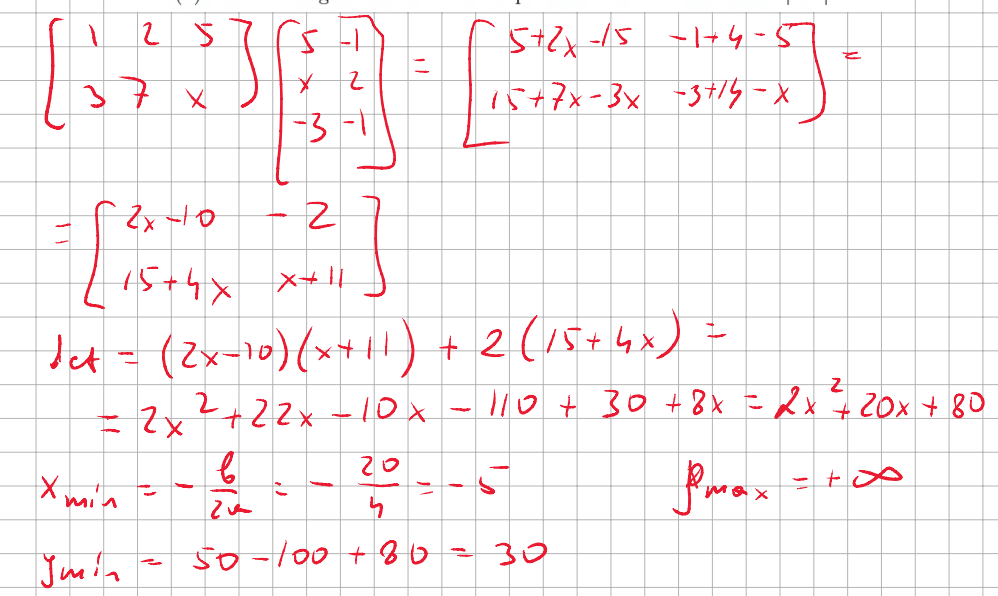 [1 2 5; 3 7 x] [5 -1; x 2; -3 -1] = [5+2x-15 -1+4-5; 15+7x-3x -3+14-x] =
= [2x-10 -2; 15+4x x+11]
det = (2x-10)(x+11) + 2(15+4x) =
= 2x² + 22x - 10x - 110 + 30 + 8x = 2x² + 20x + 80
x min = - b/2a = - 20/4 = -5 y max = +∞
y min = 50 - 100 + 80 = 30